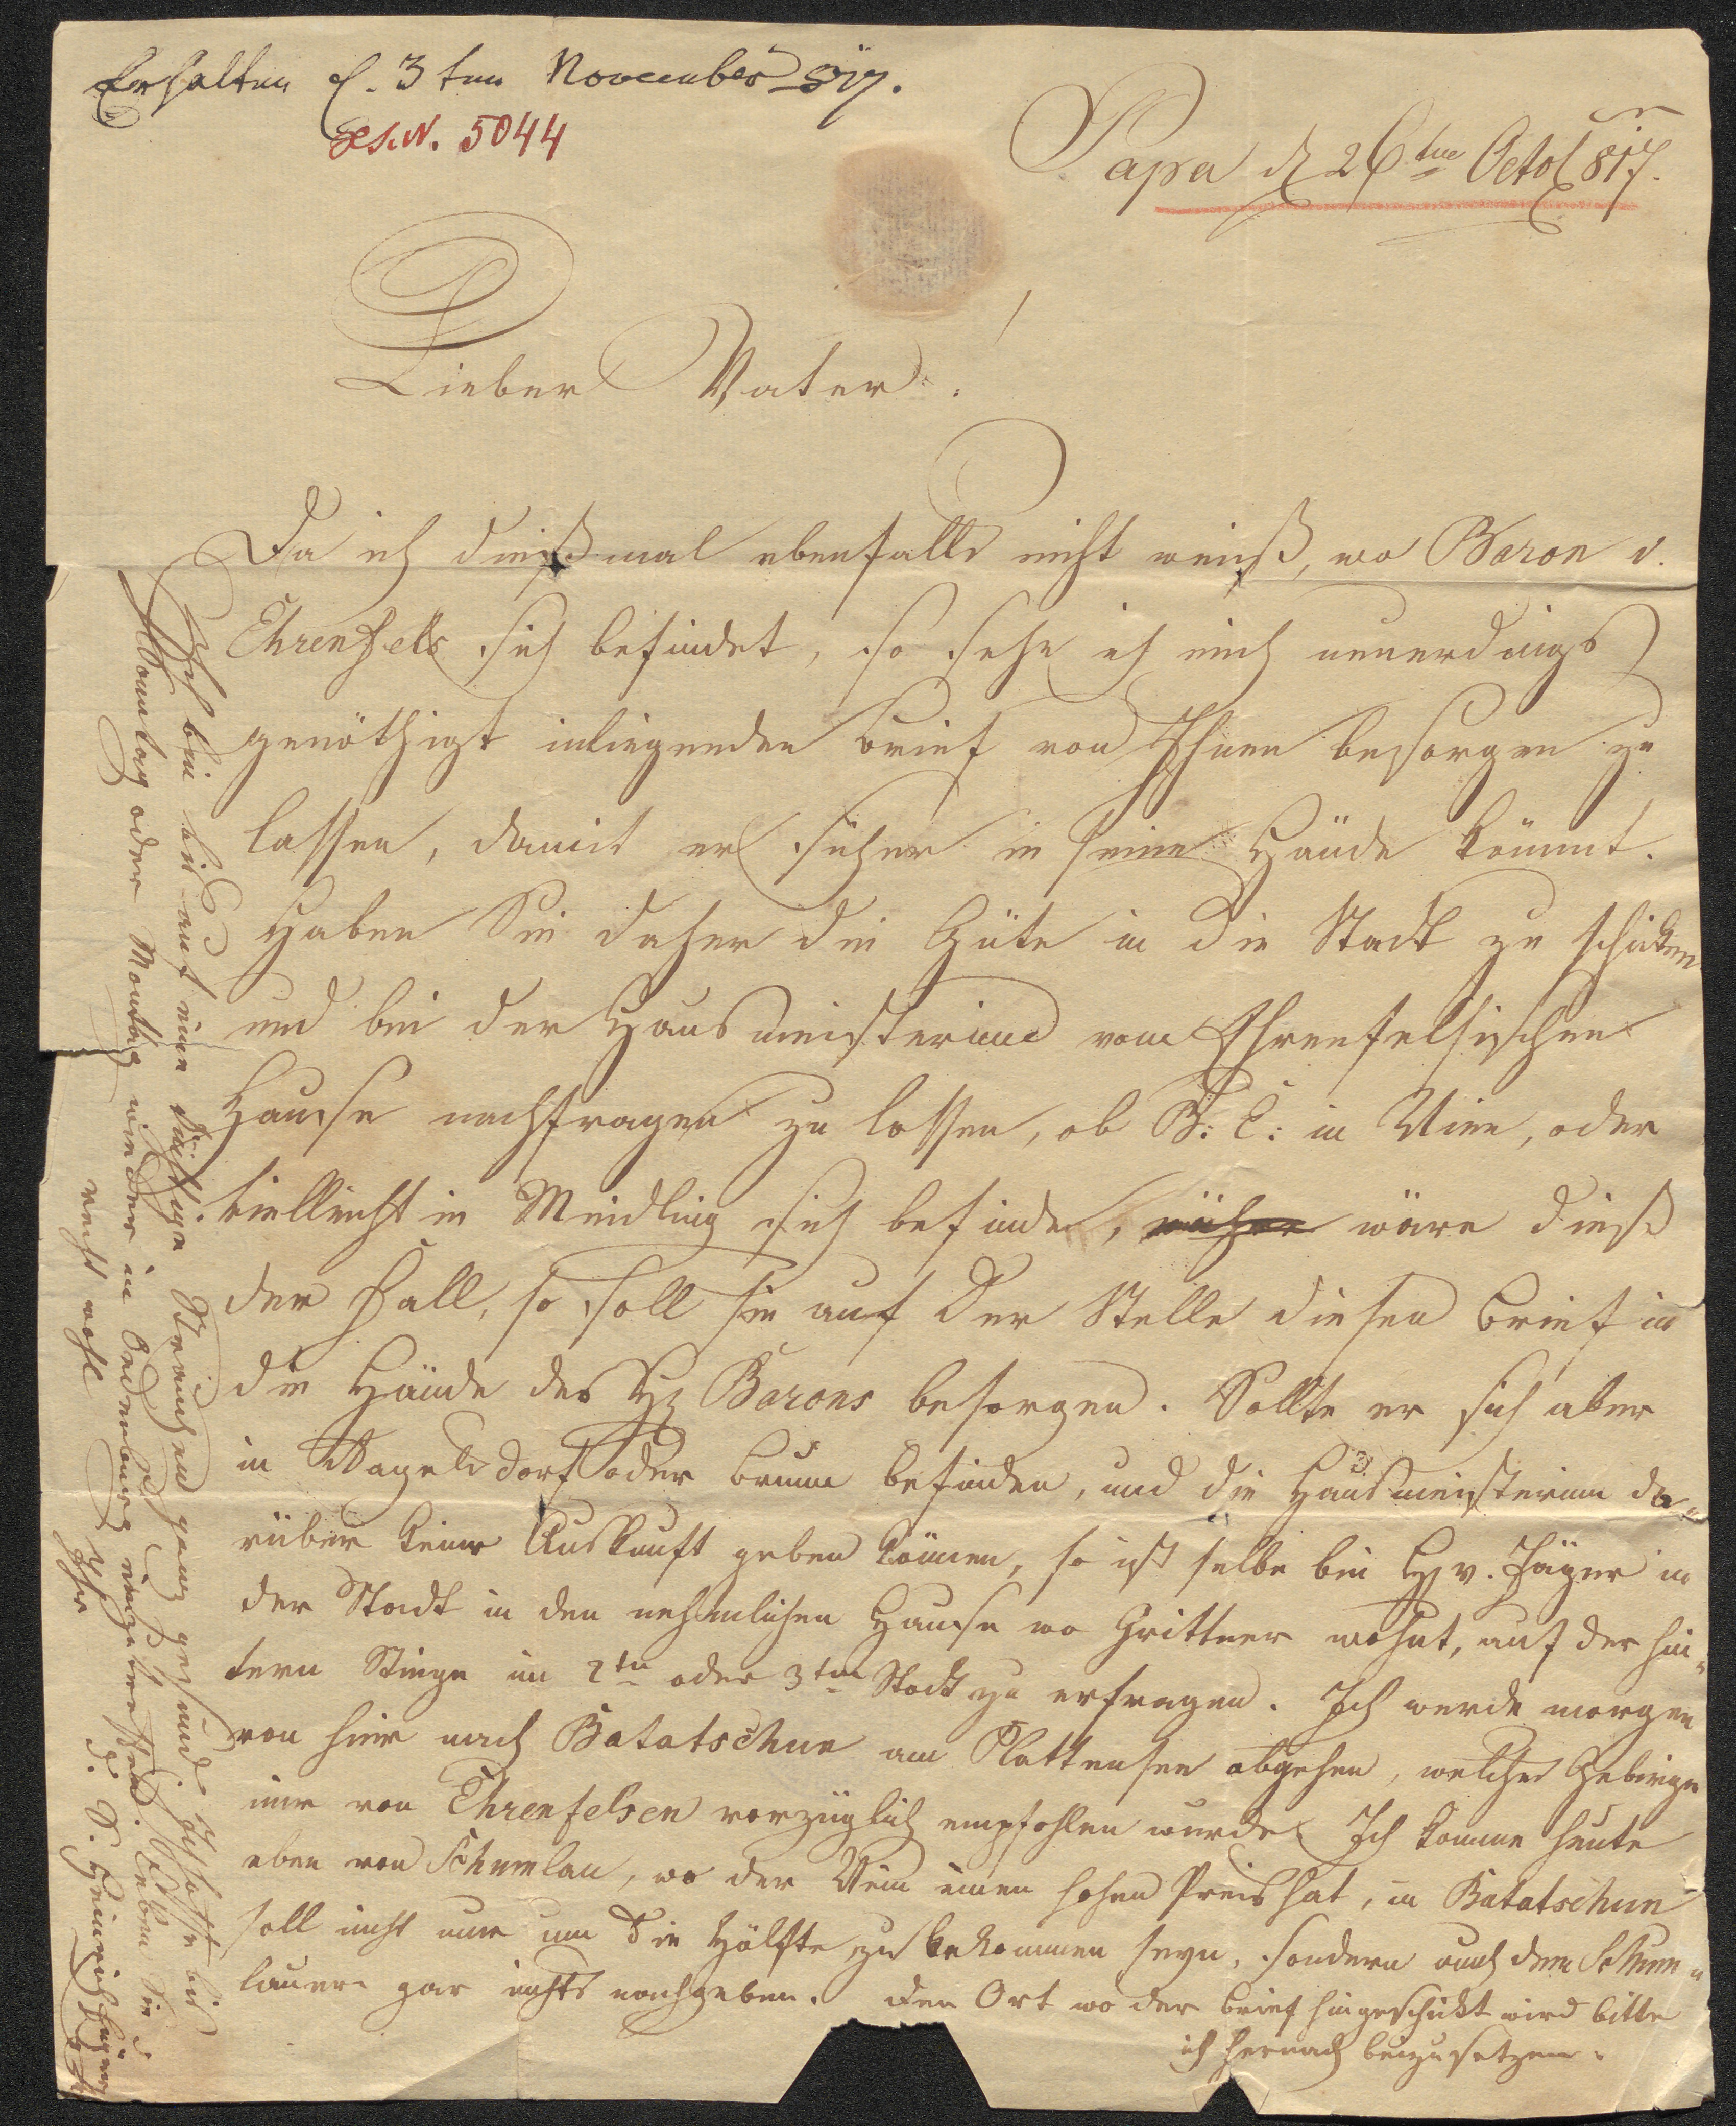 Erhalten d. 3ten November 817.
Ges. N. 5044
Papa d 26ten Octob 817.
Lieber Vater!
Da ich dießmal ebenfalls nicht weiß, wo Baron v.
Ehrenfels sich befindet, so sehe ich mich neuerdings
genöthigt inliegenden Brief von Ihnen besorgen zu
lassen, damit er sicher in seine Hände kömmt.
Haben Sie daher die Güte in die Stadt zu schicken
und bei der Hausmeisterinn vom Ehrenfelsischen
Hause nachfragen zu lassen, ob B: E: in Wien, oder
vielleicht in Meidling sich befinde, wäre dieß
der Fall, so soll sie auf der Stelle diesen Brief in
die Hände des H. Barons besorgen. Sollte er sich aber
in oder Brunn befinden, und die Hausmeisterinn da=
rüber keine Auskunft geben können, so ist selbe bei H. v. Jäger in
der Stadt in den nehmlichen Hause wo Grittner wohnt, auf der hin=
tern Stiege im 2ten oder 3ten Stock zu erfragen. Ich werde morgen
von hier nach Batatschun am Plattensee abgehen, welches Gebirge
mir von Ehrenfelsen vorzüglich empfohlen wurde. Ich komme heute
eben von Schumlau, wo der Wein einen hohen Preis hat, in Batatschun
soll nicht nur um die Hälfte zu bekommen seyn, sondern auch dem Schum=
lauer gar nichts nachgeben. Den Ort wo der Brief hingeschickt wird bitte
ich hernach beizusetzen.
Ich bin bis auf eine tüchtige ganz gesund. Ich hoffe bis
Sonntag oder Montag wieder in Oedenburg einzutreffen. Leben Sie
recht wohl Ihr d. S. Heinrich